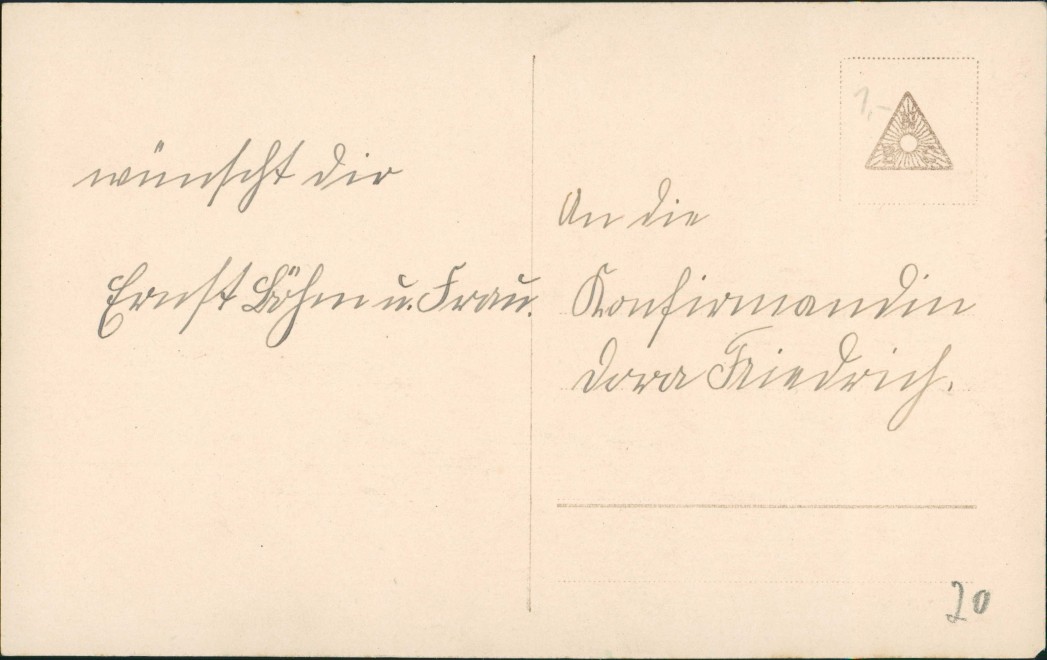 wünscht dir
Ernst Böhm u. Frau.
1,-
An die
Konfirmandin
Dora Friedrich.
20